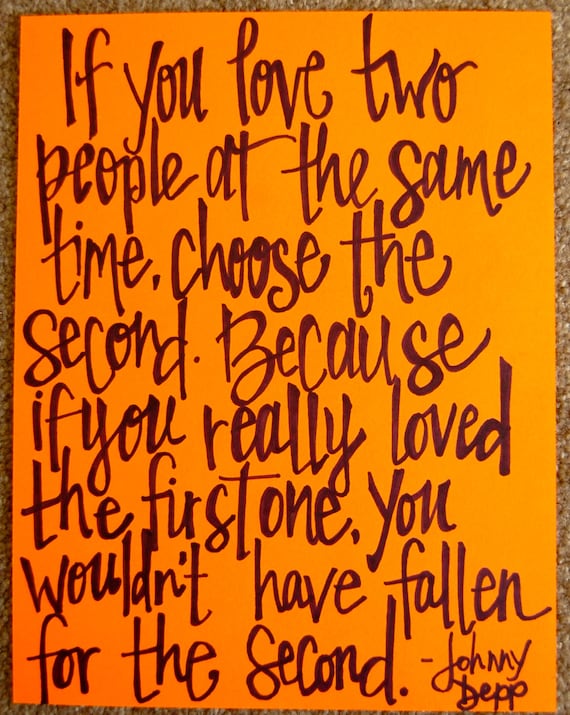 If you love two
people at the same
time, choose the
second. Because
if you really loved
the first one, you
wouldn't have fallen
for the second. - Johnny
Depp